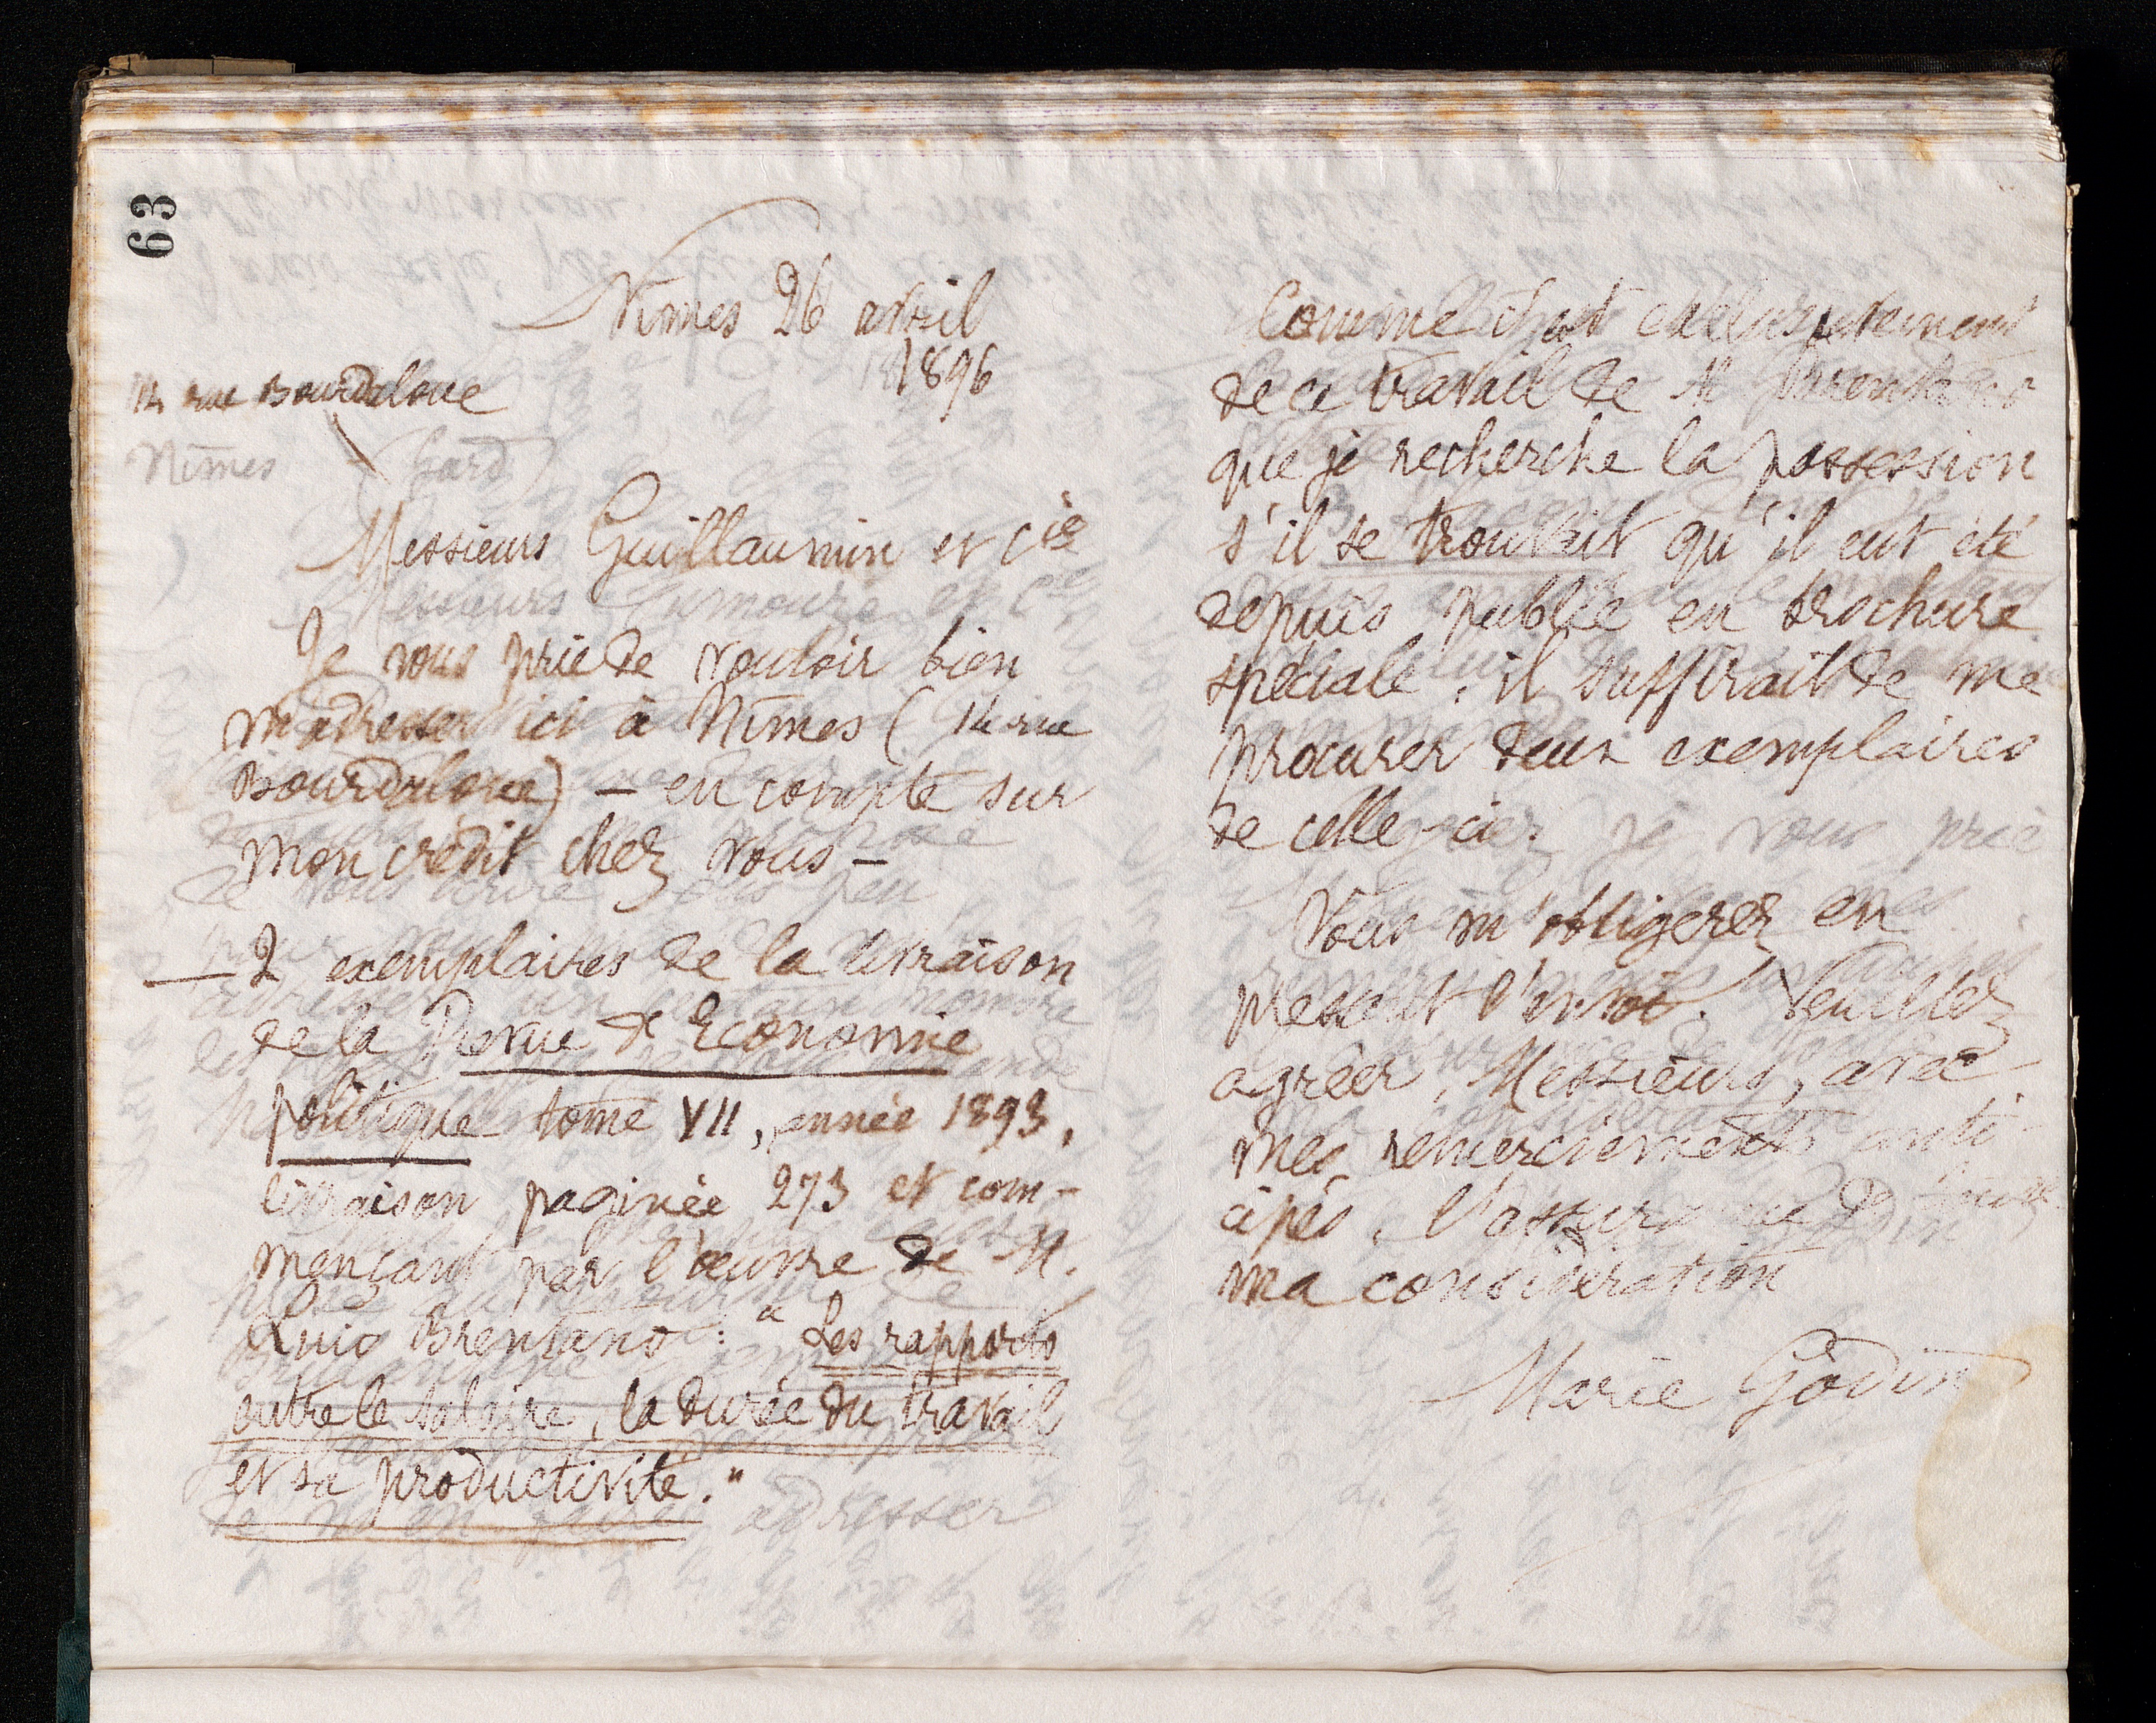 63
Nîmes 26 avril
1896
14 rue Bourdaloue
Nîmes (Gard)
Messieurs Guillaumin et Cie
Je vous prie de vouloir bien
m'adresser ici à Nîmes (14 rue
Bourdaloue) – en compte sur
mon crédit chez vous –
— 2 exemplaires de la livraison
de la Revue d'Economie
politique tome VII, année 1893,
livraison paginée 273 et com-
mençant par l'œuvre de M.
Luio Brentano : " Les rapports
entre le salaire, la durée du travail
et sa productivité."
Comme c'est exclusivement
de ce travail de M Brentano
que je recherche la possession
s'il se trouvait qu'il eut été
depuis publié en brochure
spéciale, il suffirait de me
procurer deux exemplaires
de celle-ci.
Vous m'obligerez en
pressant l'envoi. Veuillez
agréer, Messieurs, avec
mes remerciements anti-
cipés, l'assurance de toute
ma considération
Marie Godin